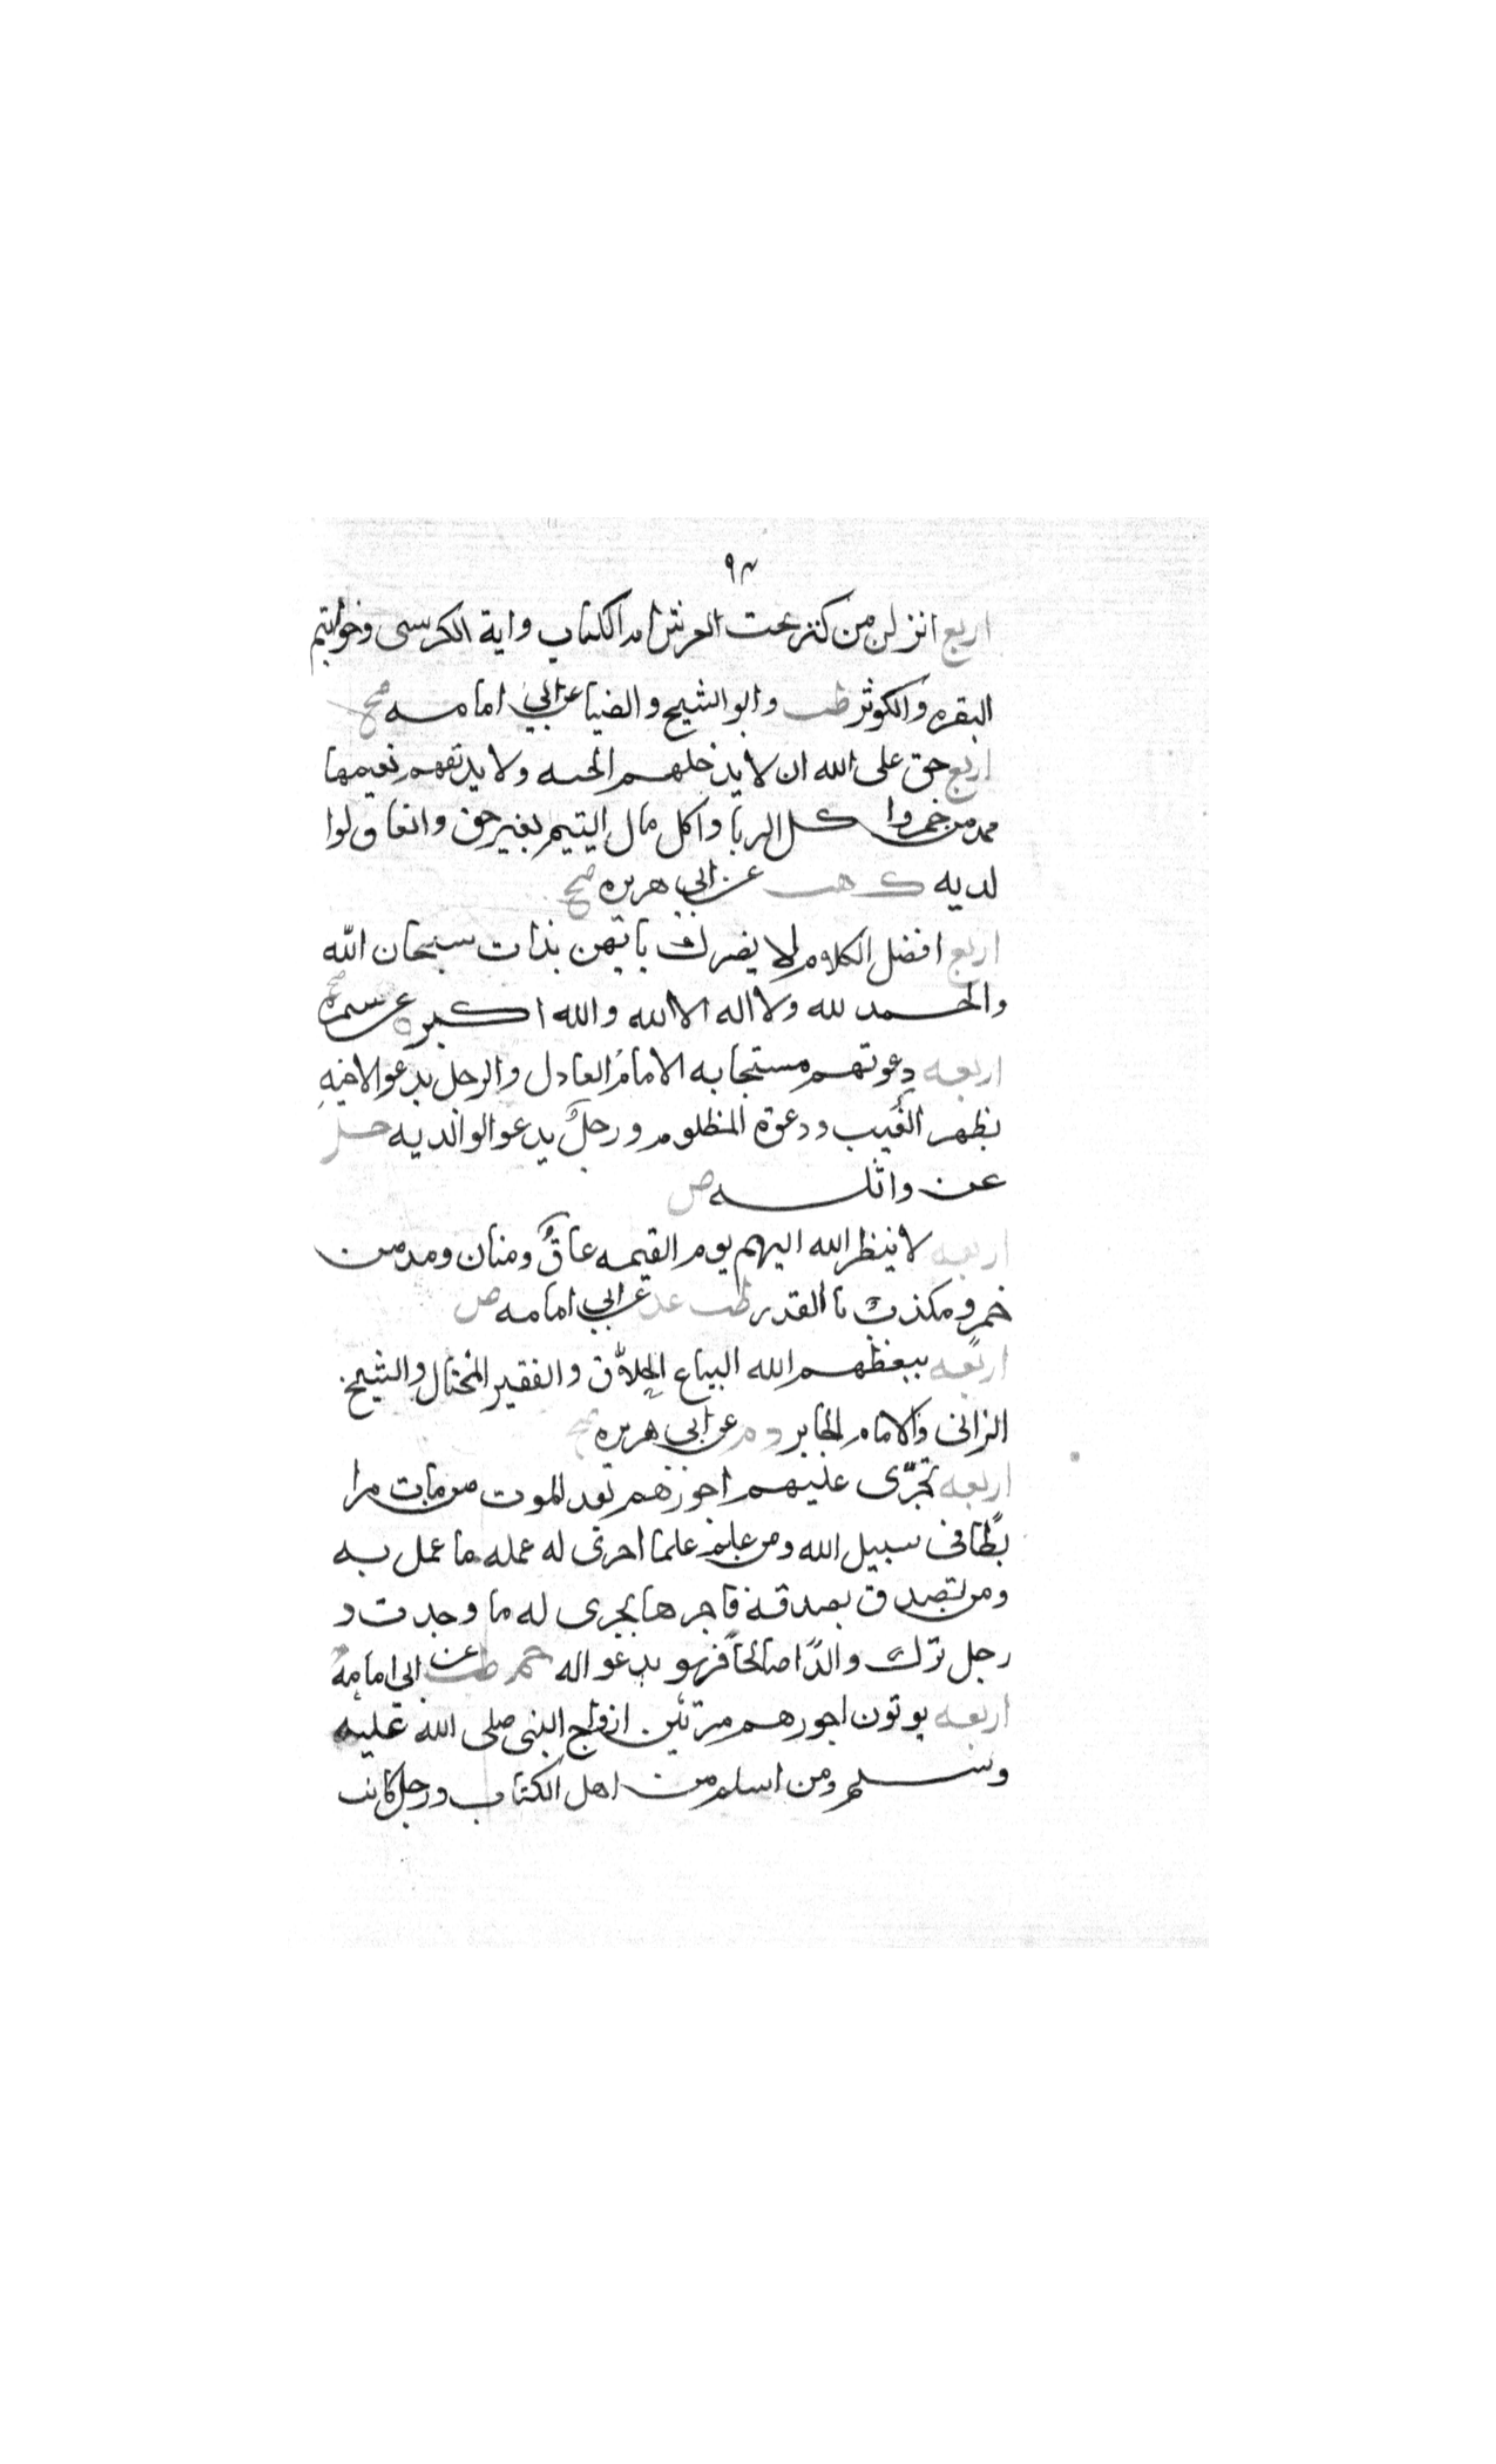 ٩٣
اربع انزلن من كنز تحت العرش ام الكتاب واية الكرسى وخواتيم
البقره والكوثر طب وابو الشيخ والضيا عن ابي امامه صح
اربع حق على الله ان لا يدخلهم الجنه ولا يذيقهم نعيمها
مدمن خمر واكل الربا واكل مال اليتيم بغير حق والعاق لوا
لديه ك هب عن ابي هريره صح
اربع افضل الكلام لا يضرك بايهن بدات سبحان الله
والحمد لله ولا اله الا الله والله اكبر ه عن سمره صح
اربعه دعوتهم مستجابه الامام العادل والرجل يدعو لاخيه
بظهر الغيب ودعوة المظلوم ورجل يدعو لوالديه حل
عن واثله ض
اربعه لا ينظر الله اليهم يوم القيمه عاق ومنان ومدمن
خمر ومكذب باالقدر طب عد عن ابي امامه ض
اربعه يبغظهم الله البياع الحلاف والفقير المختال والشيخ
الزانى والامام الجاير عن ابي هريره صح
اربعه تجرى عليهم اجورهم بعد الموت من مات مرا
بطا فى سبيل الله ومن علم علما اجرى له عمله ما عمل به
ومن تصدق بصدقة فاجرها يجرى له ما وجدت و
رجل ترك ولدا صالحا فهو يدعو اله حم طب عن ابي امامه
اربعه يوتون اجورهم مرتين ازواج النبى صلى الله عليه
وسلم ومن اسلم من اهل الكتاب ورجل كانت